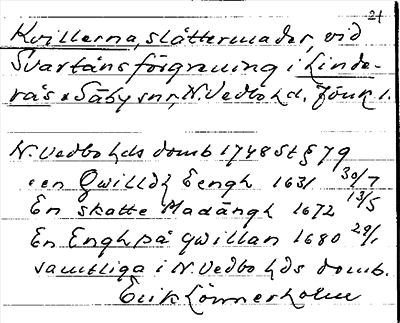 21
Kvillerna, slåttermader, vid
Svartåns förgrening i Linde-
rås o Säby snr, N. Vedbo hd, Jönk. l.
N. Vedbo hds domb 1748 St § 79
en Qwilldz Eengh 1631 30/7
En skatte Madängh 1672 13/5
En Engh på qwillan 1680 29/1
samtliga i N. Vedbo hds domb.
Erik Lönnerholm